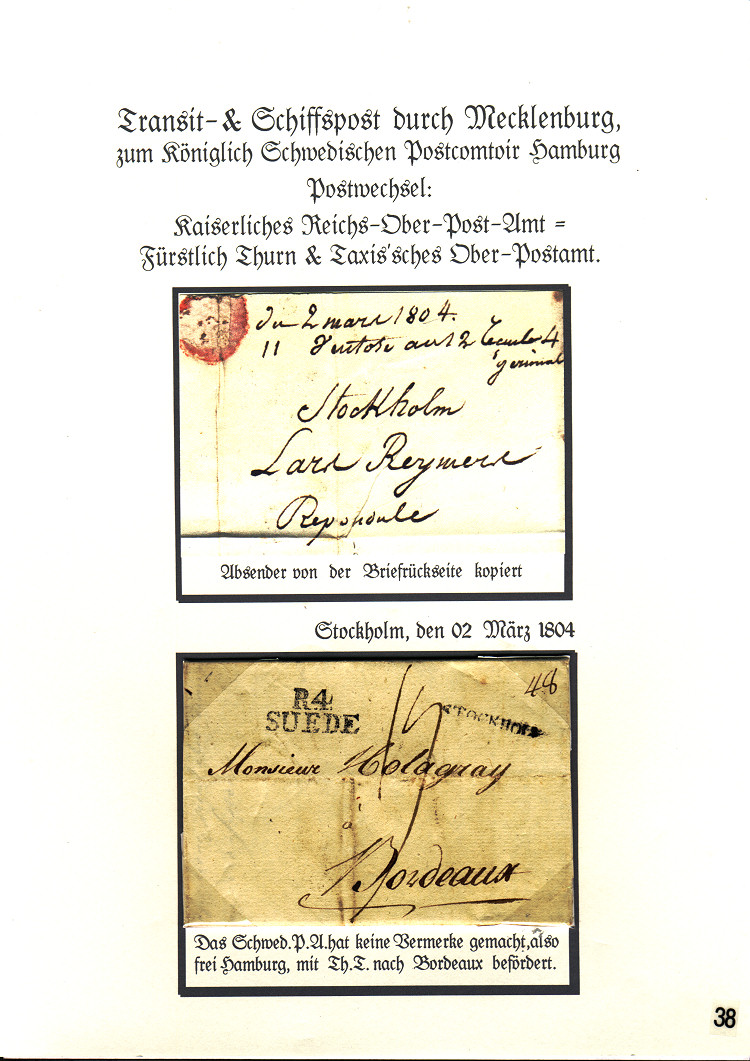 Transit- & Schiffspost durch Mecklenburg,
zum Königlich Schwedischen Postcomtoir Hamburg
Postwechsel:
Kaiserliches Reichs-Ober-Post-Amt =
Fürstlich Thurn & Taxis'sches Ober-Postamt.
du 2 mars 1804.
11 Ventose an 12 4
germinal
Stockholm
Lars Reymers
Repondue
Absender von der Briefrückseite kopiert
Stockholm, den 02 März 1804
48
R4
SUEDE
STOCKHOLM
Monsieur Holagray
a
Bordeaux
Das Schwed.P.A.hat keine Vermerke gemacht,also
frei Hamburg, mit Th.T. nach Bordeaux befördert.
38